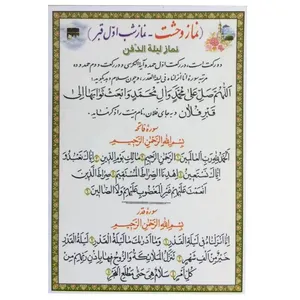 (نماز وحشت - نماز شب اول قبر)
نماز لیلة الدفن
دو رکعت است، در رکعت اول حمد و آیة الکرسی و در رکعت دوم حمد و ده
مرتبه سوره انا انزلناه فی لیلة القدر، و چون سلام دهد بگوید:
اَللّهُمَّ صَلِّ عَلی مُحَمَّدٍ وَالِ مُحَمَّدٍ وَابْعَثْ ثَوابَها اِلی
قَبْرِ فُلان و به جای فلان، نام میت را ذکر نماید.
سورهٔ فاتحه
بِسْمِ اللهِ الرَّحْمنِ الرَّحیمِ
اَلْحَمْدُ لِلّهِ رَبِّ الْعالَمینَ اَلرَّحْمنِ الرَّحیمِ مالِكِ یَوْمِ الدّینِ اِیّاكَ نَعْبُدُ وَ
اِیّاكَ نَسْتَعینُ اِهْدِنَا الصِّراطَ الْمُسْتَقیمَ صِراطَ الَّذینَ
اَنْعَمْتَ عَلَیْهِمْ غَیْرِ الْمَغْضُوبِ عَلَیْهِمْ وَلاَ الضّالّینَ
سورهٔ قدر
بِسْمِ اللهِ الرَّحْمنِ الرَّحیمِ
اِنّا اَنْزَلْناهُ فی لَیْلَةِ الْقَدْرِ وَما اَدْریكَ ما لَیْلَةُ الْقَدْرِ لَیْلَةُ الْقَدْرِ
خَیْرٌ مِنْ اَلْفِ شَهْرٍ تَنَزَّلُ الْمَلائِكَةُ وَالرُّوحُ فیها بِاِذْنِ رَبِّهِمْ مِنْ
كُلِّ اَمْرٍ سَلامٌ هِیَ حَتّی مَطْلَعِ الْفَجْرِ